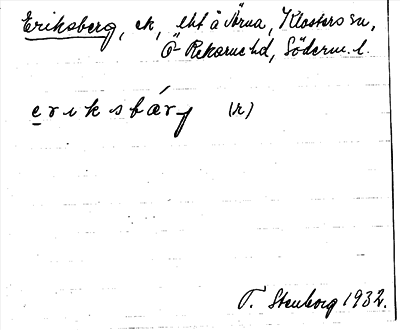 Eriksberg, ek, lht å Ärna, Klosters sn,
Ö-Rekarne hd, Söderm. l.
eriksbárj (r)
T. Stenborg 1932.